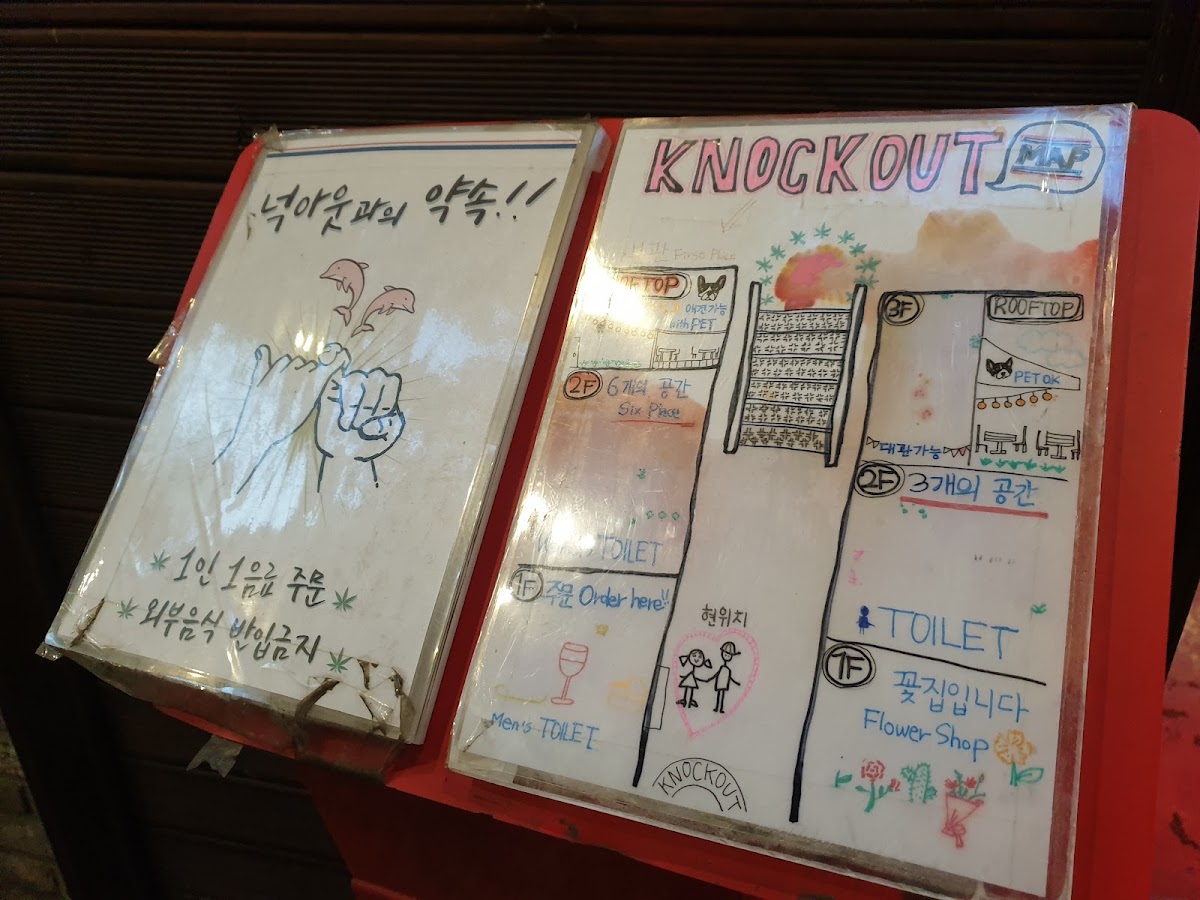 넉아웃과의 약속!!
1인 1음료 주문
외부음식 반입금지
KNOCKOUT MAP
First Place
애견가능
with PET
2F 6개의 공간
Six Place
TOILET
1F 주문 Order here!!
Men's TOILET
현위치
KNOCKOUT
3F
ROOFTOP
PET OK
대관가능
2F 3개의 공간
TOILET
1F
꽃집입니다
Flower Shop